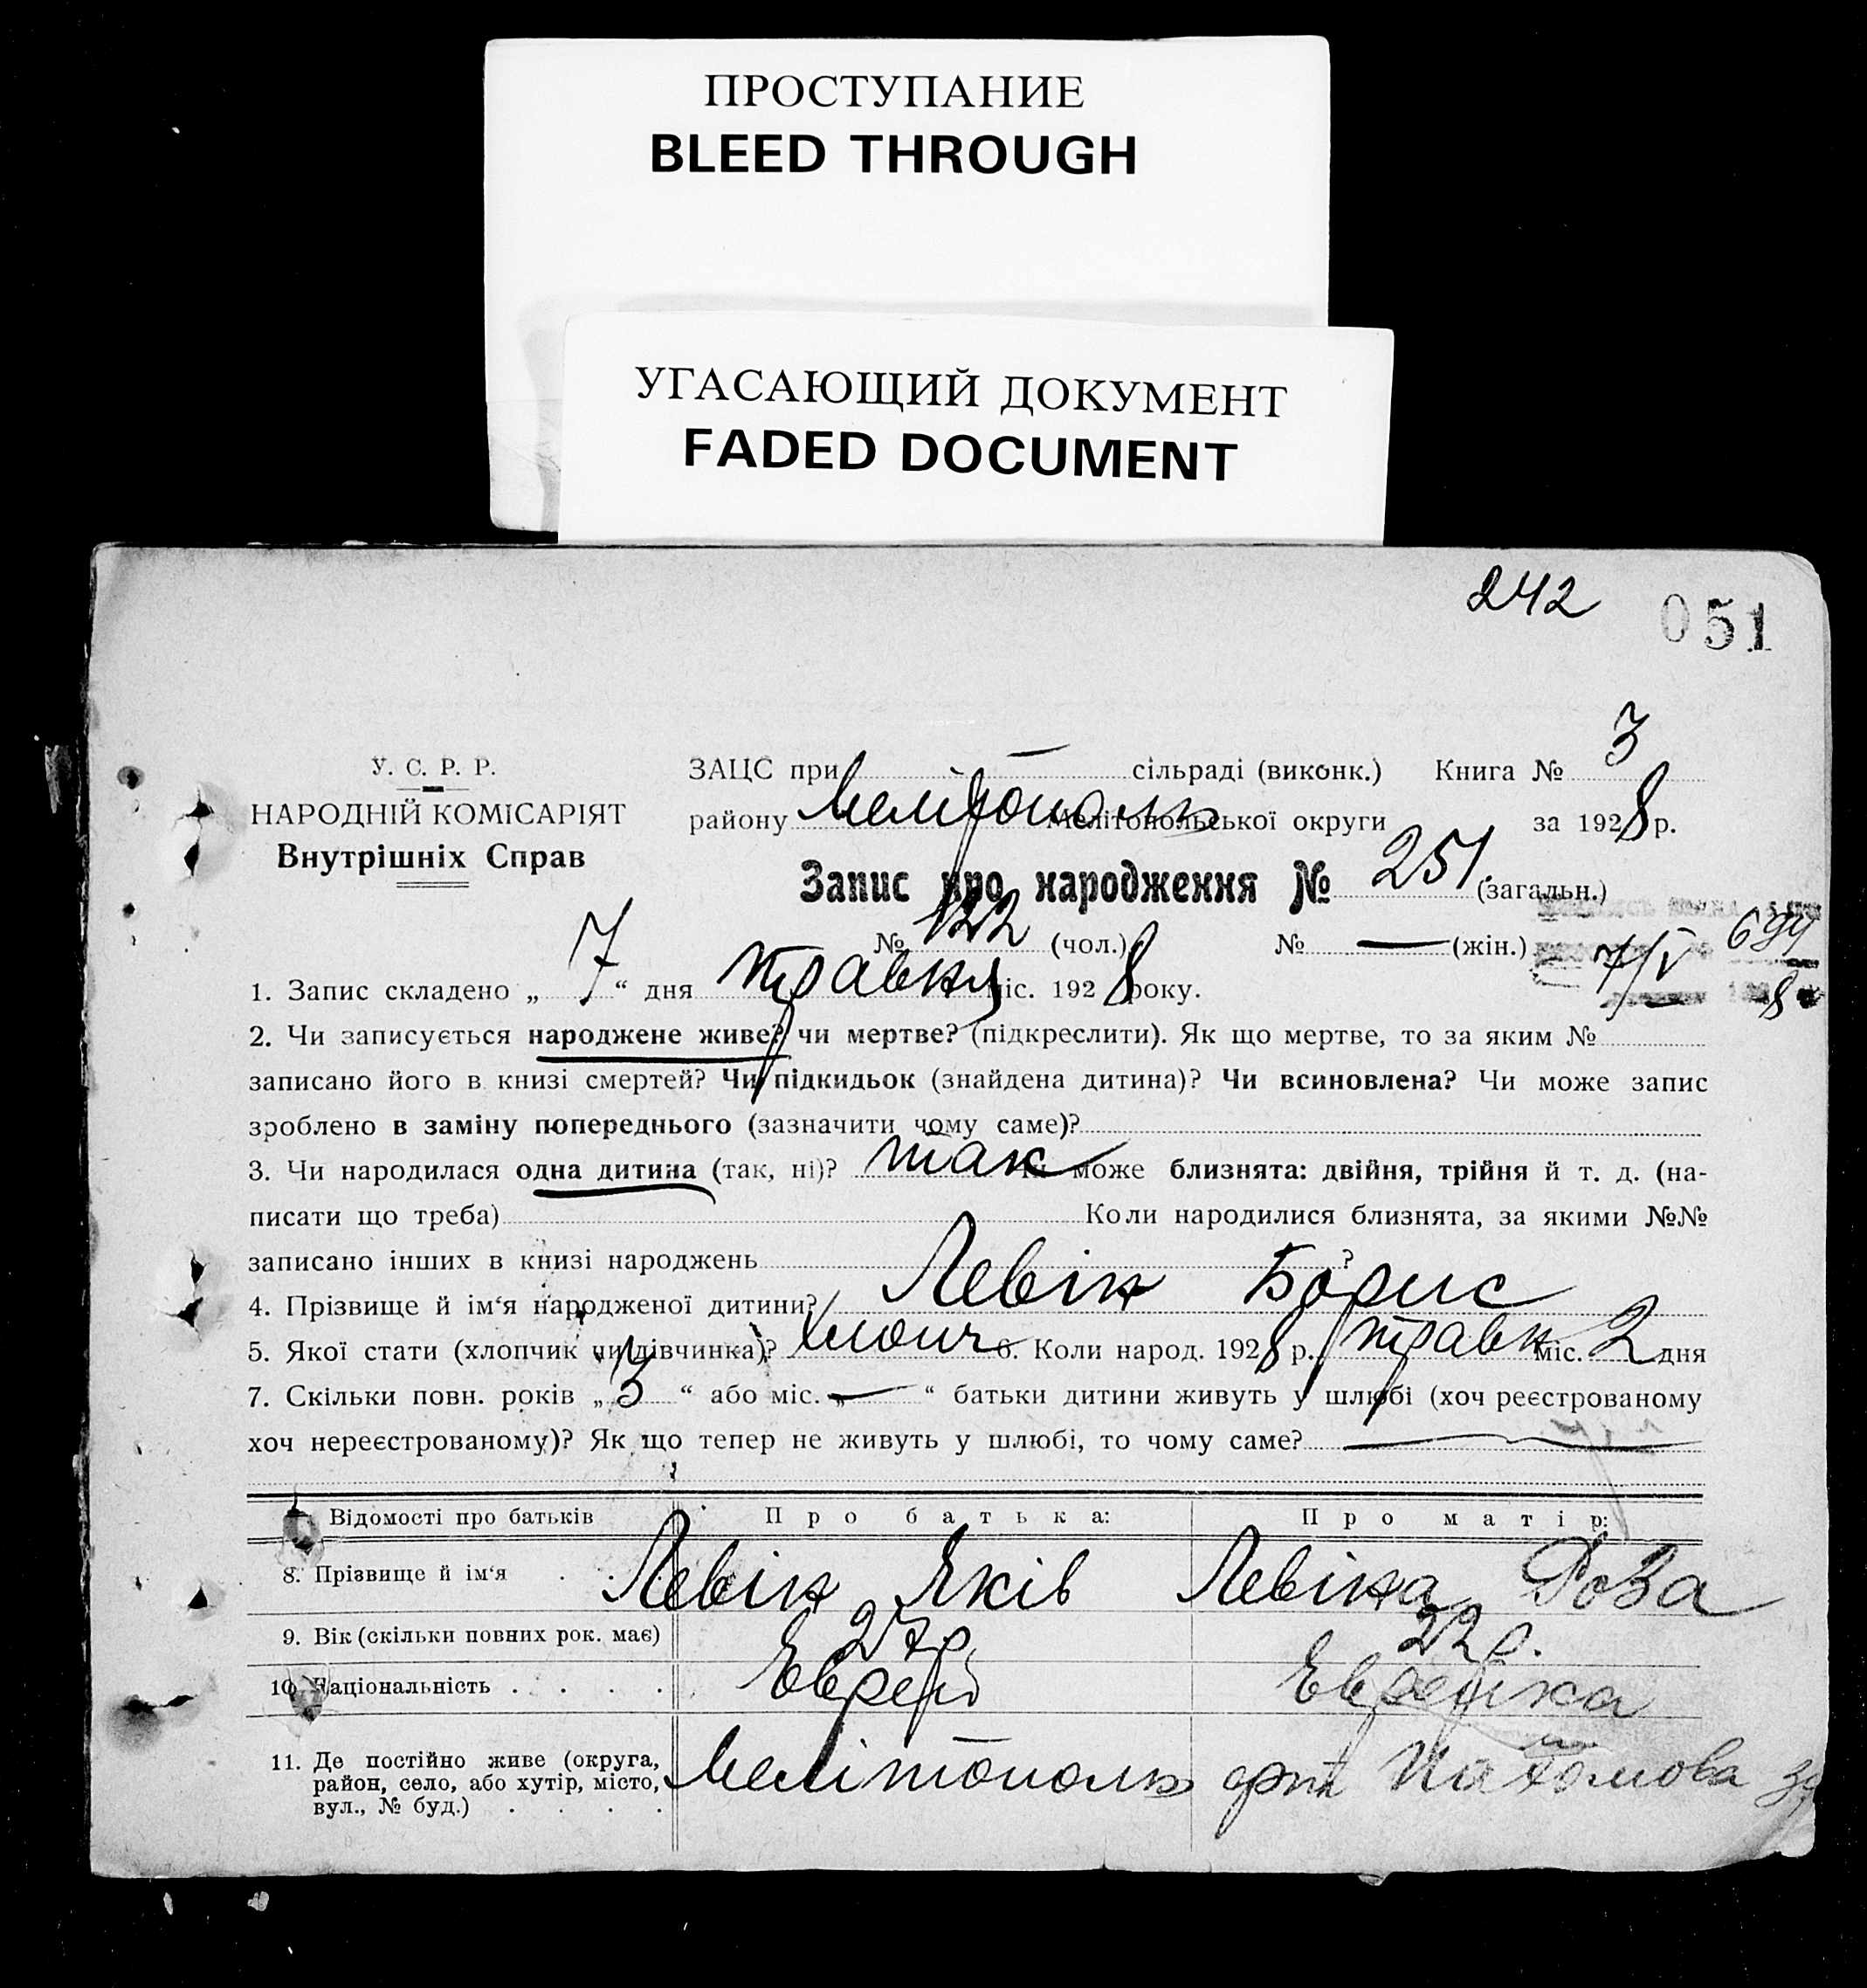 ПРОСТУПАНИЕ
BLEED THROUGH
УГАСАЮЩИЙ ДОКУМЕНТ
FADED DOCUMENT
242
051
У. С. Р. Р.
НАРОДНІЙ КОМІСАРІЯТ
Внутрішніх Справ
ЗАЦС при — сільраді (виконк.) Книга № 3
району Мелітополь Мелітопольської округи за 1928 р.
Запис про народження № 251. (загальн.)
№ 122 (чол.) № — (жін.)
699
7/V
8
1. Запис складено „7“ дня травня міс. 1928 року.
2. Чи записується народжене живе? чи мертве? (підкреслити). Як що мертве, то за яким №
записано його в книзі смертей? Чи підкидьок (знайдена дитина)? Чи всиновлена? Чи може запис
зроблено в заміну попереднього (зазначити чому саме)?
3. Чи народилася одна дитина (так, ні)? так Чи може близнята: двійня, трійня й т. д. (на-
писати що треба) Коли народилися близнята, за якими №№
записано інших в книзі народжень ?
4. Прізвище й ім‘я народженої дитини? Левін Борис
5. Якої стати (хлопчик чи дівчинка)? хлопч 6. Коли народ. 1928 р. травн міс. 2 дня
7. Скільки повн. років „3“ або міс. „—“ батьки дитини живуть у шлюбі (хоч реєстрованому
хоч нереєстрованому)? Як що тепер не живуть у шлюбі, то чому саме? —
Відомості про батьків Про батька: Про матір:
8. Прізвище й ім‘я . . . Левін Яків Левіна Роза
9. Вік (скільки повних рок. має) 27 р. 22 р.
10. Національність . . . . Еврей Еврейка
11. Де постійно живе (округа,
район, село, або хутір, місто,
вул., № буд.) . . . .
Мелітополь